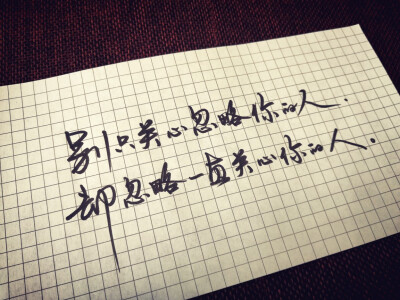 别只关心忽略你的人.
却忽略一直关心你的人.